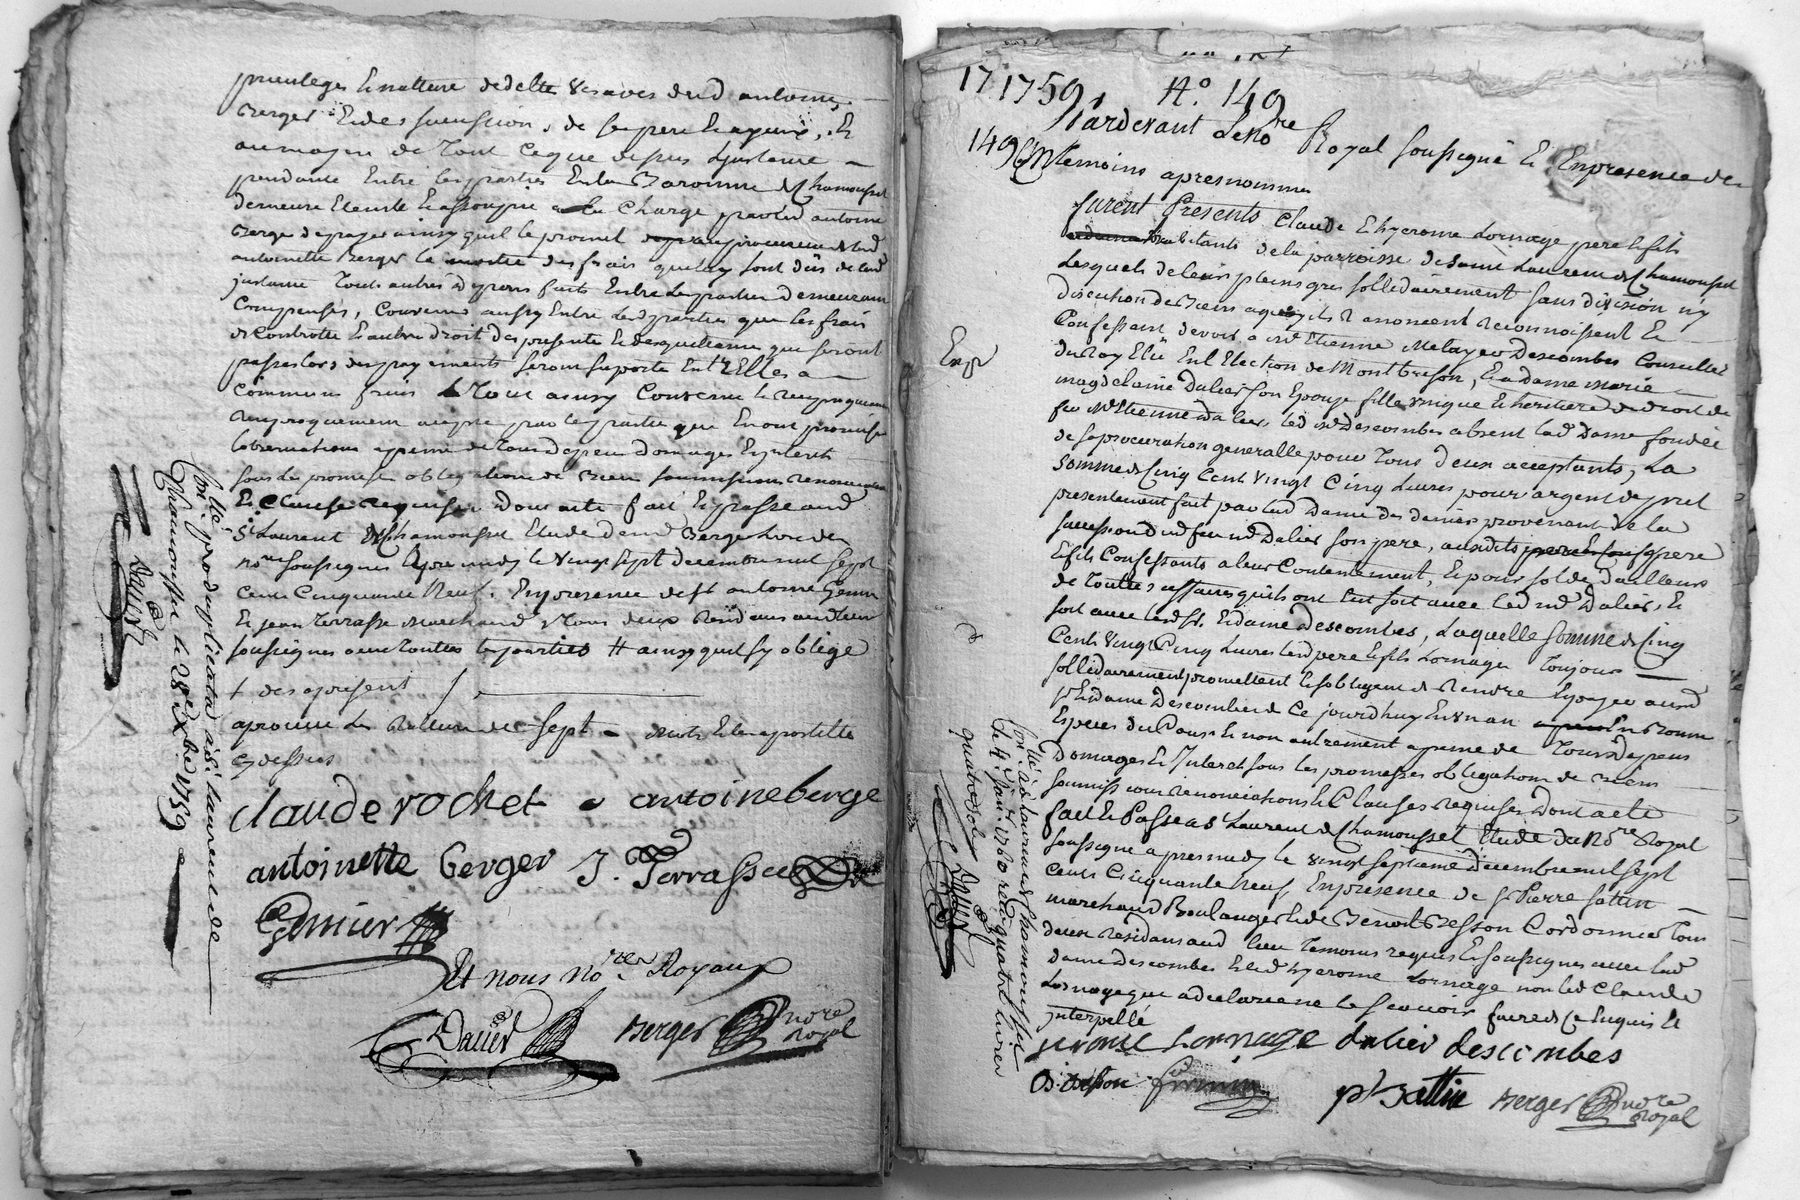 privileges Et nature dedette Vis avis dud antoine
Berger Et de succession, de ses pere Et ayeux, Et
au moyen de Tout Ceque depuis Linstance
pendante Entre les parties En la Baronnie de Chamousset
demeure Eteinte Et assoupie a la Charge par led antoine
Berge de payer ainsy quil le promet
antoinette Berger la moitié des frais quelley sont dûs de lad
instance Tous autres depens faits Entre les parties demeurant
Compensés, Convenu aussy Entre les d parties que les frais
de Controlle Et autres droit des presente Et des quittances que seront
passes lors des payements seront suporté Entr'Elles a
Communs frais Tout ainsy Convenu Et reciproquement
reciproquement accepté par les parties que En ont promis
lobservation a peine de Tous depens domages Et interets
sous les promesses obligations de biens soumissions renonciations
Et Clauses requises Dont acte fait Et passé aud
St Laurent de Chamousset Etude dud Me Berger L'un des
nores soussignés Le jeudy le vingt sept decembre mil sept
Cents Cinquante Neuf. En presence de Sr antoine Genier
Et jean Terrasse Marchand Tous deux residans aud lieu
soussignes avec Toutes les parties # ainsy quil sy oblige
+ des apresent /
aprouvé la Rature de sept mots Et la apostille
cy dessus
claude rochet antoine berge
antoinette berger J. Terrasse
Genier
Et nous nores Royaux
Dalier Berger nore
Royal
Con.llé par duplicata a St laurent de
Chamousset le 28e Xbre 1759
Dalier
17 1759 No. 149
149 Pardevant Le Nore Royal soussigné Et En presence des
temoins apres nommes
furent Presents Claude Et hyerome Lornage pere Et fils
habitants de la parroisse de Saint Laurent de Chamousset
Lesquels de leurs pleins gres sollidairement sans division ny
discution de Biens aquoy ils renoncent reconnoissent Et
Confessent devoir a Me Etienne Melayer Descombes Conseiller
du Roy Elû En L'Election de Montbrison, Et a dame Marie
magdelaine Dalier son Epouze fille unique Et heritiere de droit de
feu Me Etienne Dalier, led Me Descombes absent lad Dame fondée
de sa procuration generalle pour Tous deux acceptants, La
Somme de Cinq Cents vingt Cinq Livres pour argent de pret
presentement fait par lad Dame Des deniers provenant de la
succession dud feu Me Dalier son pere, auxdits pere
Et fils Confessants a leur Contentement, Et pour solde d'ailleurs
de Toutes affaires quils ont Eut soit avec led Me Dalier, Et
soit avec lesd Sr. Et dame descombes, Laquelle somme de Cinq
Cents Vingt Cinq Livres lesd pere Et fils Lornage Toujours
sollidairement promettent Et sobligent de Rendre Et payer auxd
Sr Et dame Descombes de Ce jourdhuy En un an En Bonne
Especes du Cours Et non autrement a peine de Tous depens
Domages Et Interets sous les promesses obligations de biens
soumissions renonciations Et Clauses requises Dont acte
fait Et Passé a St Laurent de Chamousset Etude du Nore Royal
soussigné apres midy le vingt septieme decembre mil sept
Cents Cinquante neuf, En presence de Sr Pierre Sattin
marchand Boulanger Et de Benoit Besson Cordonnier Tous
deux residans aud lieu temoins requis Et soussignes avec lad
dame Descombes Et led hyerome Lornage non led Claude
Lornage que a declaré ne le scavoir faire de ce Enquis Et
interpellé
jerome Lornage dalier descombes
B. besson
pr. Sattin Berger nore
Royal
Exp
Con.llé a st laurent de Chamousset
le 4e Janv. 1760 reçu quatre livres
quatre sols
Dalier